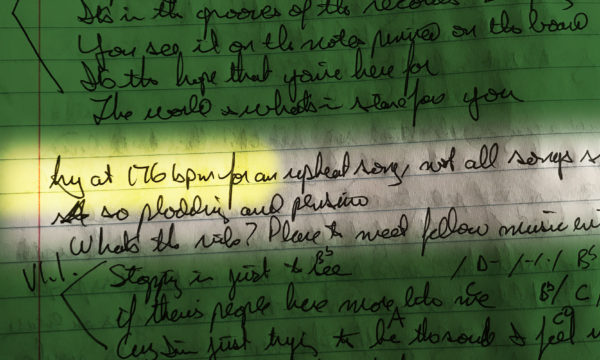 It's in the grooves of the records
You see it on the notes pinned on the board
It's the hope that you're here for
The world & what's in store for you
try at 176 bpm for an upbeat song, not all songs
so plodding and pensive
What's the vibe? Place to meet fellow music
V1.1. Stopping in just to see Bb / D- / -/-/ Bb
if there's people here more like me C Bb / C
Cuz I'm just trying to be A the soul & feel C9